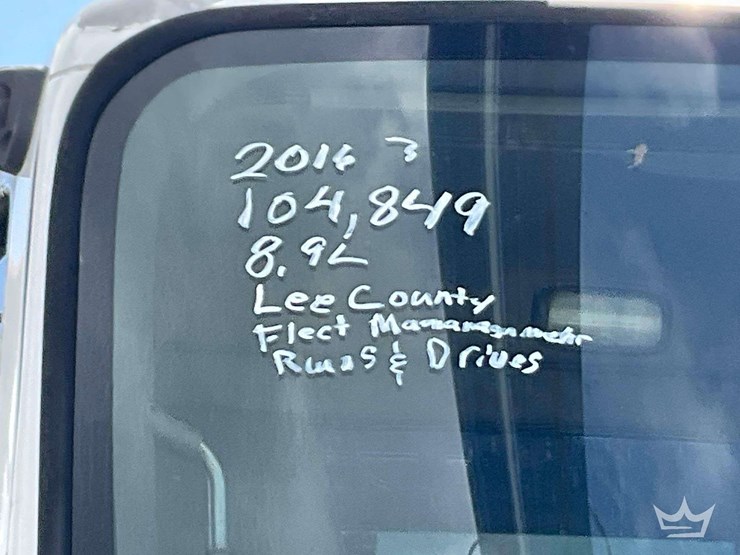 2016 3
104,849
8.9L
Lee County
Flect
Runs & Drives